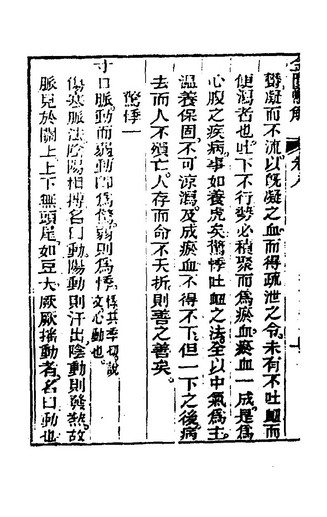 金匱懸解
卷八
鬱凝而不流以既凝之血而得疏泄之令未有不吐衄而
便瀉者也吐下不行勢必積聚而為瘀血瘀血一成是為
心腹之疾病事如養虎矣驚悸吐衄之法全以中氣為主
溫養保固不可涼瀉及成瘀血不得不下但一下之後病
去而人不殞亡人存而命不夭折則善之善矣
驚悸一
寸口脈動而弱動即為驚弱則為悸悸其季切說文心動也
傷寒脈法陰陽相搏名曰動陽動則汗出陰動則發熱故
脈見於關上上下無頭尾如豆大厥厥搖動者名曰動也